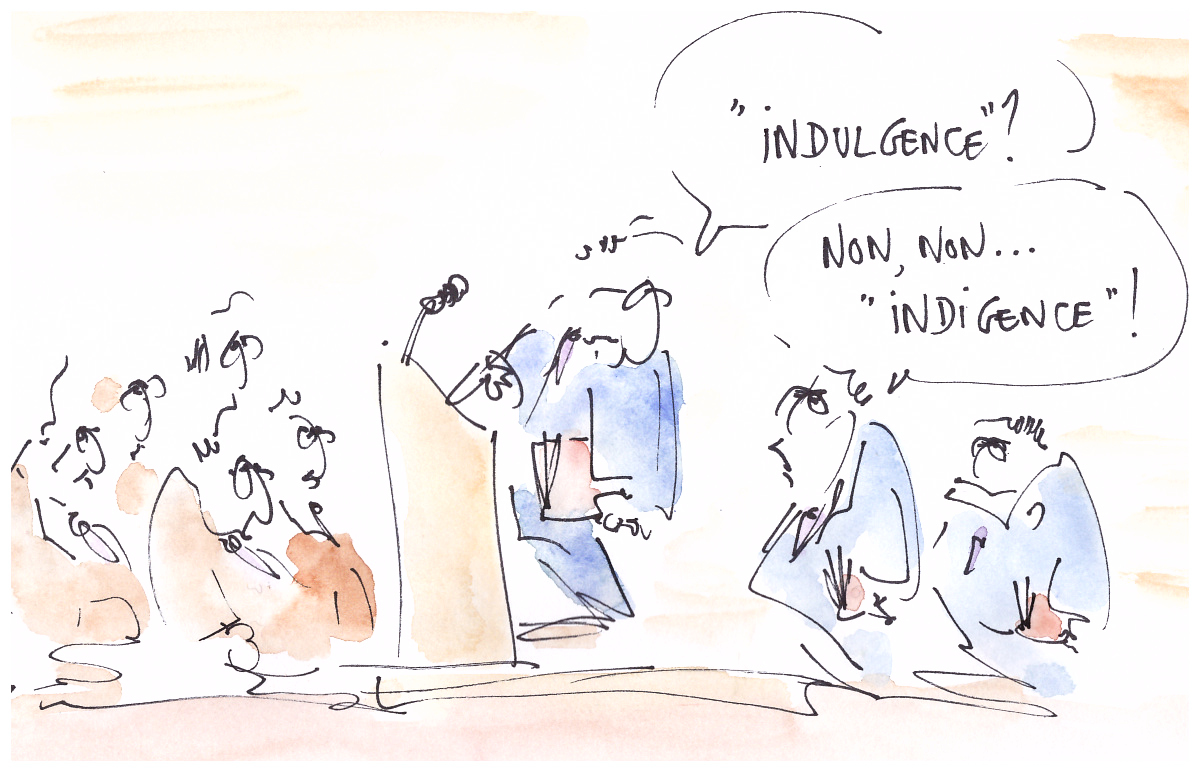 "iNDULGENCE"?
NON, NON...
"iNDiGENCE"!